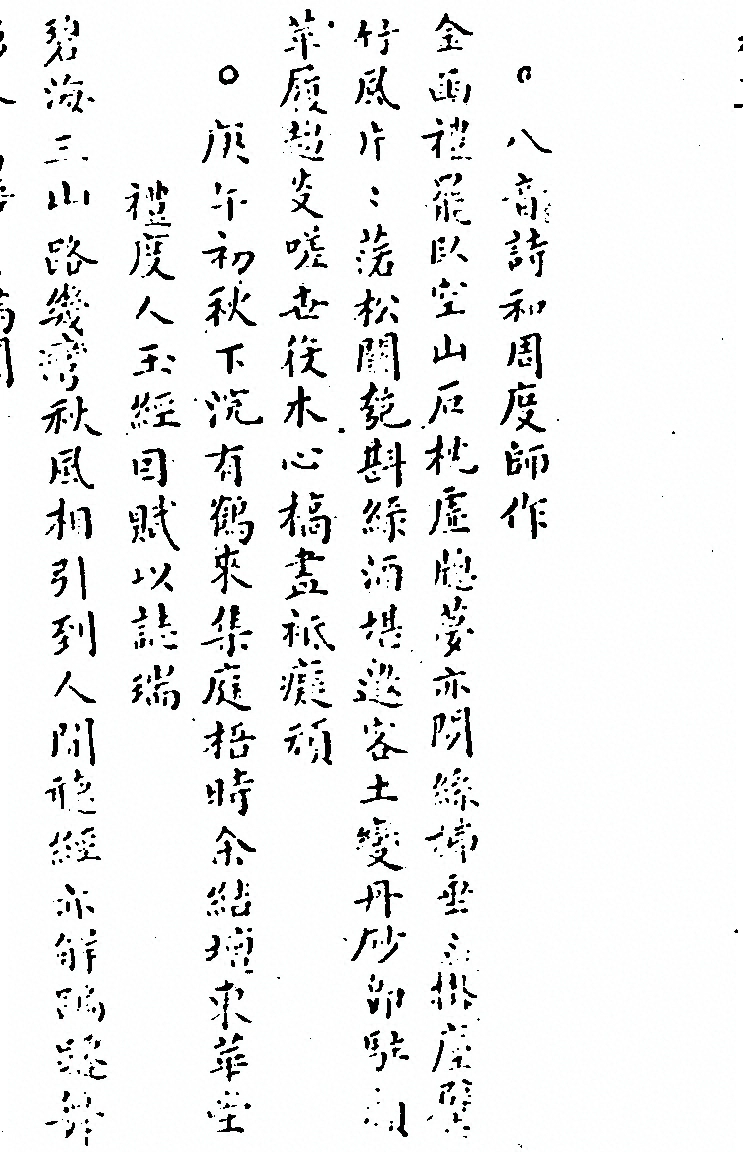 ○八音詩和周度師作
金函禮罷臥空山石枕虛牕夢亦閒絲拂垂垂掛座壁
竹風片〻落松關匏斟綠酒堪邀客土變丹砂卽駐顏
革履趨炎嗟世後木心槁盡祗癡頑
○庚午初秋下沅有鶴來集庭梧時余結壇東華堂
禮度人玉經因賦以誌瑞
碧海三山路幾灣秋風相引到人間聽經亦解蹁躚舞